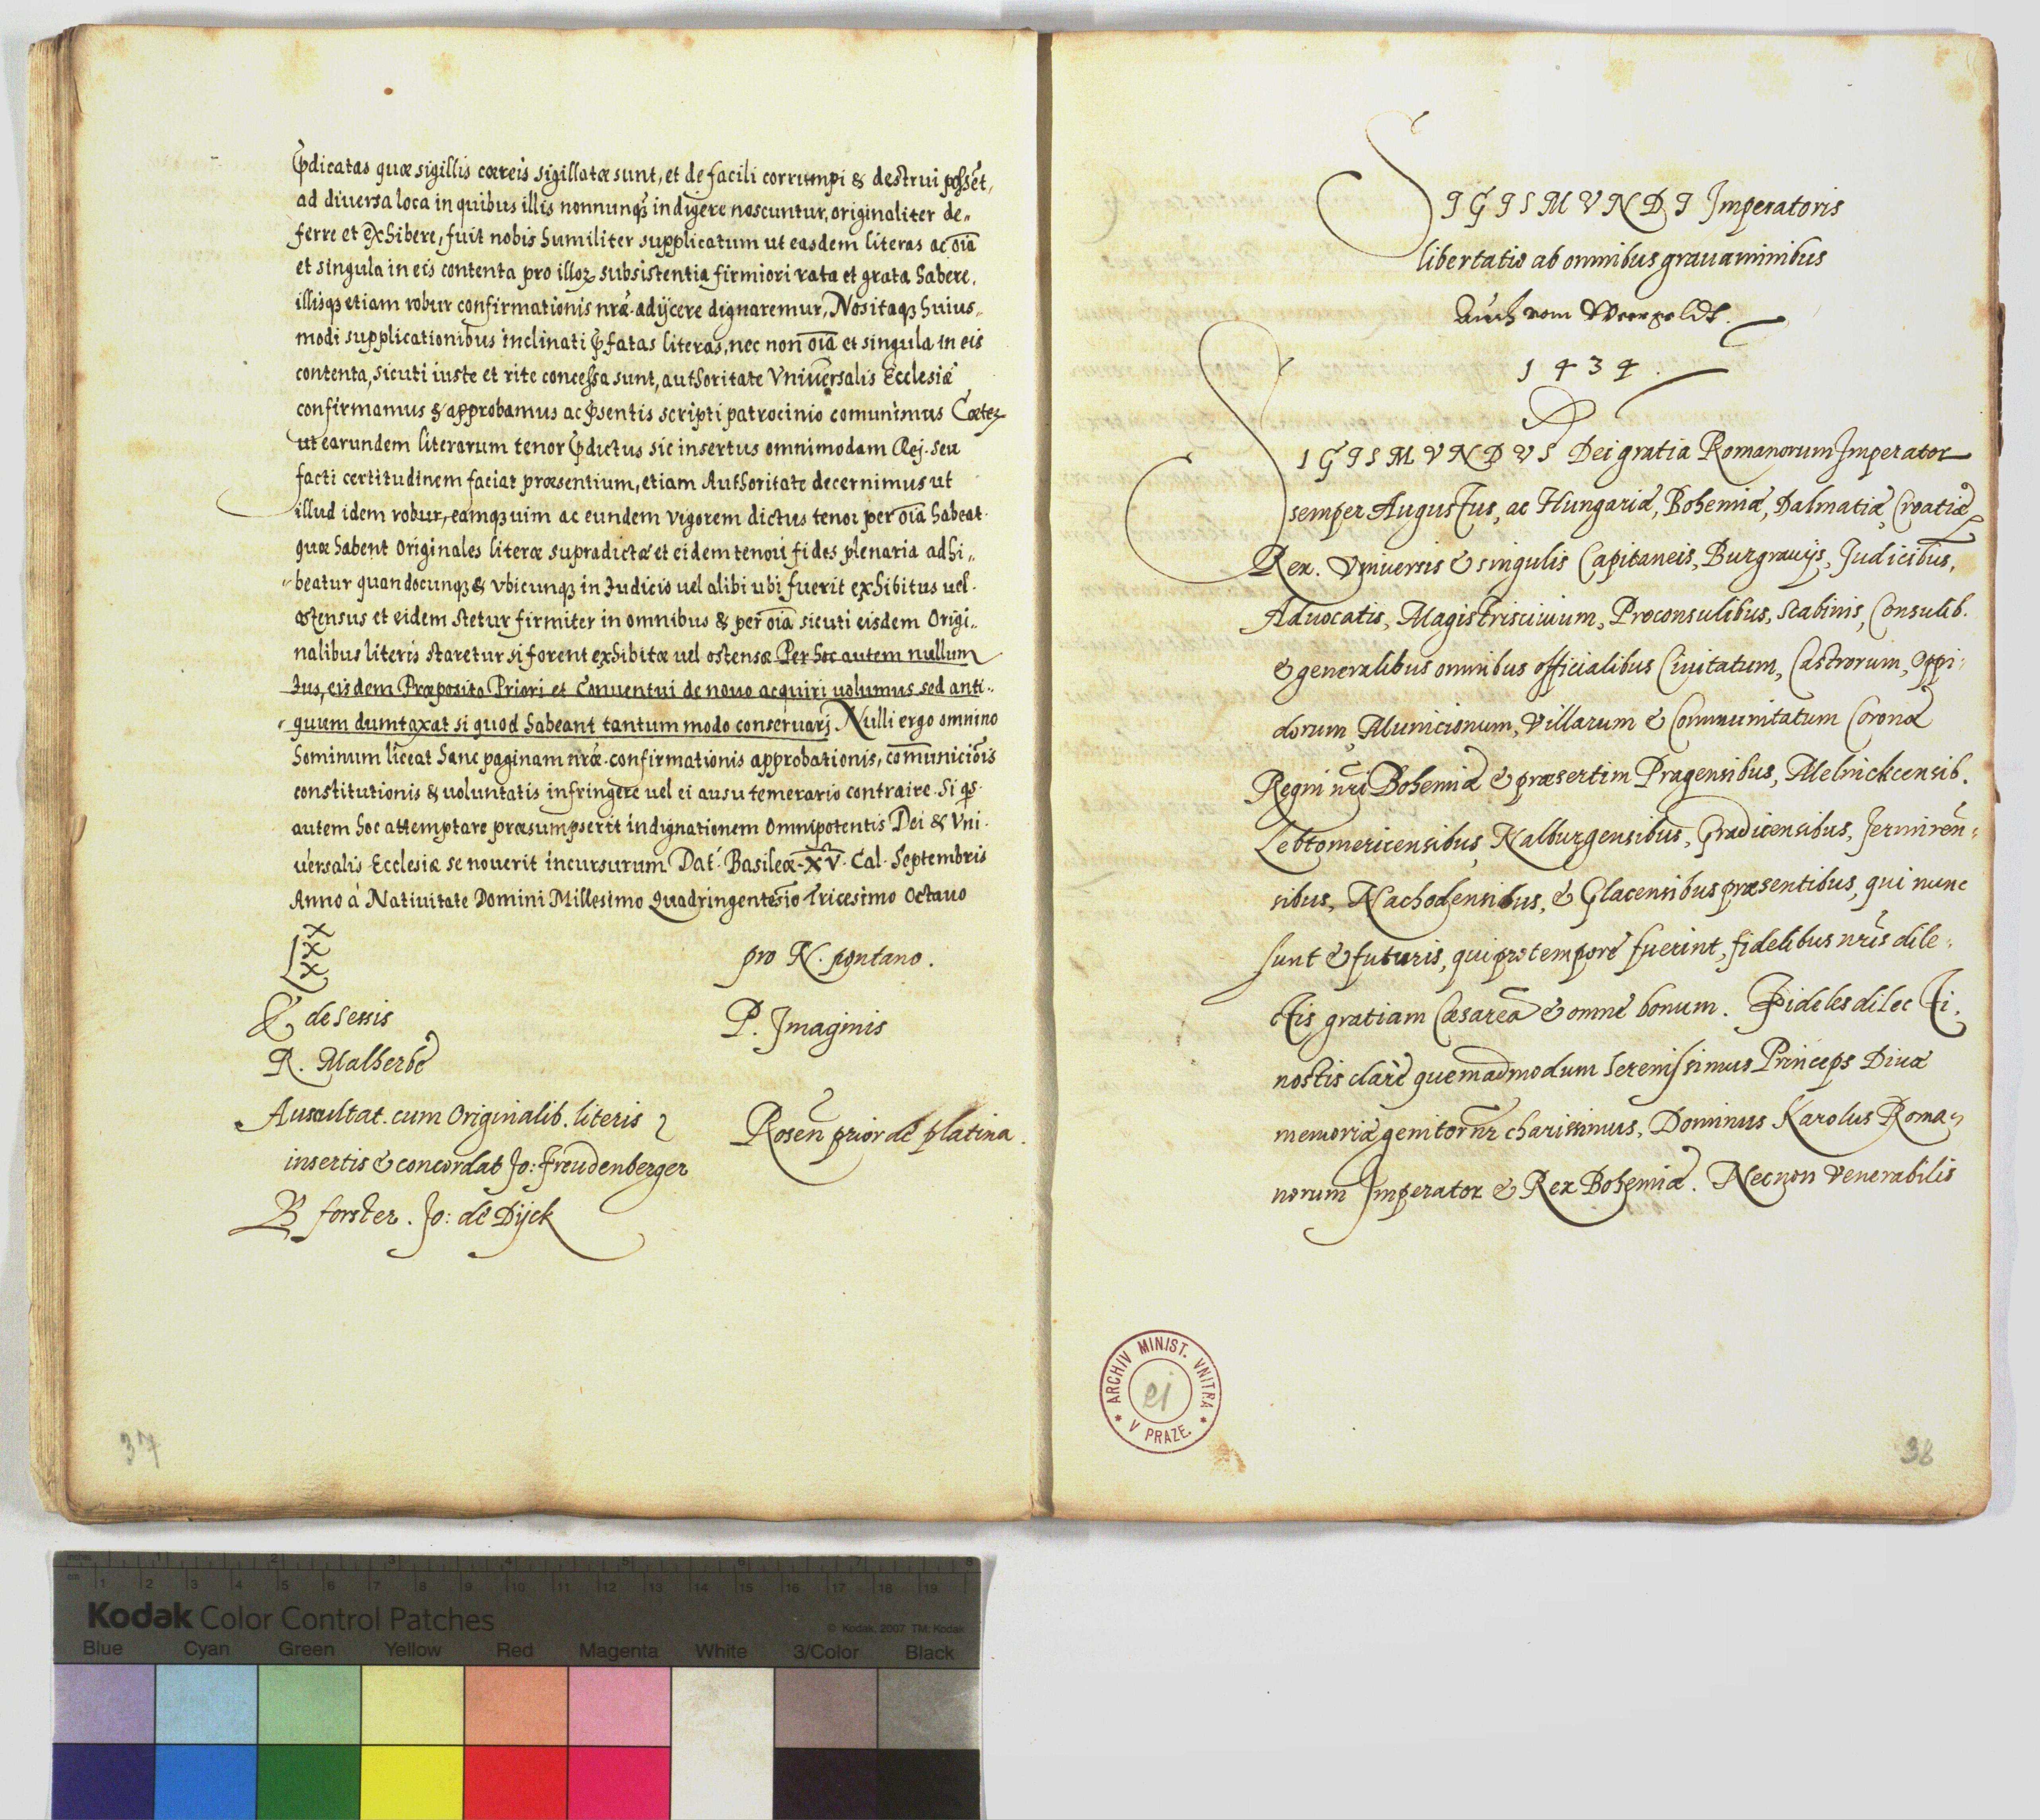 p̃dicatas quæ sigillis cæreis sigillatæ sunt, et de facili corrumpi & destrui possēt,
ad diuersa loca in quibus illis nonnunqȝ indigere noscuntur, originaliter de„
ferre et exhibere, fuit nobis humiliter supplicatum ut easdem literas ac oīa
et singula in eis contenta pro illoꝝ subsistentia firmiori rata et grata habere,
illisqȝ etiam robur confirmationis nr̃æ adijcere dignaremur, Nos itaqȝ huius„
modi supplicationibus inclinati p̃fatas literas, nec non oīa et singula in eis
contenta, sicuti iuste et rite concessa sunt, authoritate Vniuersalis Ecclesiæ
confirmamus & approbamus ac p̃sentis scripti patrocinio comunimus Cæteꝝ
ut earundem literarum tenor p̃dictus sic insertus omnimodam Rej. seu
facti certitudinem faciat præsentium, etiam Authoritate decernimus ut
illud idem robur, eamqȝ uim ac eundem vigorem dictus tenor per oīa habeat
quæ habent Originales literæ supradictæ et eidem tenori fides plenaria adhi„
„beatur quandocunqȝ & vbicunqȝ in Iudicio uel alibi ubi fuerit exhibitus uel
ostensus et eidem stetur firmiter in omnibus & per oīa sicuti eisdem Origi„
nalibus literis staretur si forent exhibitæ uel ostensæ Per hoc autem nullum
Ius, eisdem Præposito Priori et Conuentui de nouo acquiri uolumus sed anti„
„quum dumtaxat si quod habeant tantum modo conseruarj Nulli ergo omnino
hominum liceat hanc paginam nr̃æ confirmationis approbationis, comunicīois
constitutionis & uoluntatis infringere uel ei ausu temerario contraire. Si qs
autem hoc attemptare præsumpserit indignationem Omnipotentis Dei & Vni
versalis Ecclesiæ se nouerit incursurum Dat. Basileæ XV. Cal. Septembris
Anno à Natiuitate Domini Millesimo Quadringentesīo Tricesimo Octauo
x
x
x
pro N. pontano.
de Sessis
P. Jmaginis
R. Malherbe
Auscultat. cum Originalib. literis
Rosen prior de platina.
insertis & concordat Jo: Freudenberger
B forster. Jo: de Dijck
37
SIGISMVNDI Imperatoris
libertatio ab omnibus grauaminibus
Auch vom
1434.
SIGISMVNDVS Dei gratia Romanorum Imperator
semper Augustus, ac Hungariæ, Bohemiæ, Dalmatiæ, Croatiæ
Rex. Vniuersis & singulis Capitaneis, Burgrauijs, Judicibus,
Aduocatis, Magistris ciuium, Proconsulibus, Scabinis, Consulib.
& generalibus omnibus officialibus Ciuitatum, Castrorum, Oppi„
dorum, Municionum, Villarum & Communitatum Coronæ
Regni nr̃i Bohemiæ & præsertim Pragensibus, Melnickcensib.
Lebtomericensibus, Nalburgensibus, Gradicensibus, Jermiren„
sibus, Nachodensibus, & Glacensibus præsentibus, qui nunc
sunt & futuris, qui pro tempore fuerint, fidelibus nr̃is dile„
ctis gratiam Cæsareā & omne bonum. Fideles dilecti,
nostis clarè quemadmodum Serenissimus Princeps Diuæ
memoriæ genitor nr̃ charissimus, Dominus Karolus Roma„
norum Imperator & Rex Bohemiæ. Necnon Venerabilis
ARCHIV MINIST. VNITRA V PRAZE.
ei
38
Kodak Color Control Patches
© Kodak, 2007 TM: Kodak
Blue Cyan Green Yellow Red Magenta White 3/Color Black
inches 1 2 3 4 5 6 7 8
cm 1 2 3 4 5 6 7 8 9 10 11 12 13 14 15 16 17 18 19